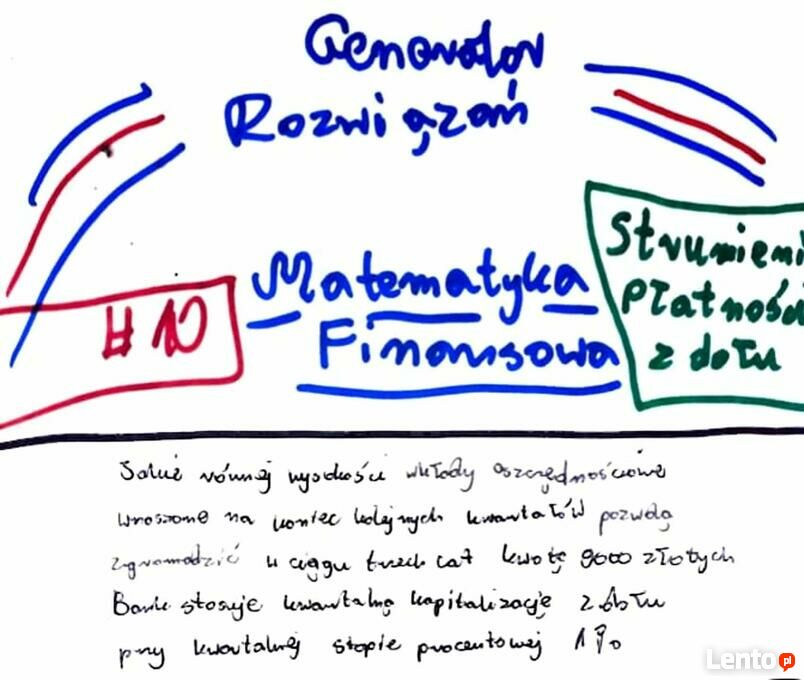 Generator
Rozwiązań
#10
Matematyka
Finansowa
Strumieni
płatności
z dołu
Jakie równej wysokości wkłady oszczędnościowe
wnoszone na koniec kolejnych kwartałów pozwolą
zgromadzić w ciągu trzech lat kwotę 9000 złotych
Bank stosuje kwartalną kapitalizację z dołu
przy kwartalnej stopie procentowej 1%
Lento.pl